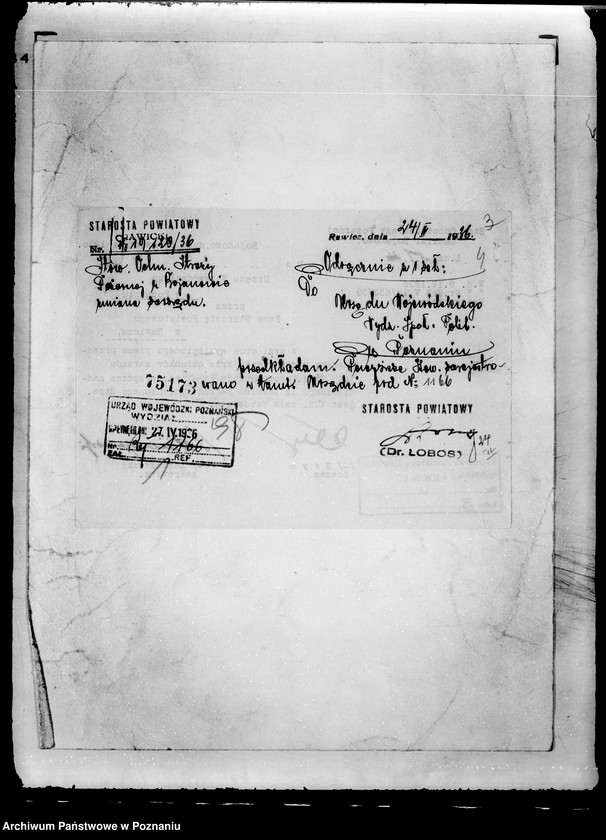 STAROSTA POWIATOWY
RAWICKI
Nr. 119/36
Stow. Ochn. Straży
Pożarnej w Bojanowie
zmiana zarządu.
Rawicz, dnia 24/IV 1936.
3
4
Odręcznie z 1 zał.:
Do
Urzędu Wojewódzkiego
Wydz. Społ. Polit.
w Poznaniu
przedkładam. Powyższe Stow. zarejestro-
75173 wano w tamt. Urzędzie pod № 1166
STAROSTA POWIATOWY
(Dr. ŁOBOS)
24
IV
URZĄD WOJEWÓDZKI POZNAŃSKI
WYDZIAŁ
WPŁYNĘŁO 27. IV. 1936
Nr. 1166
ZAŁ. REF.
Archiwum Państwowe w Poznaniu